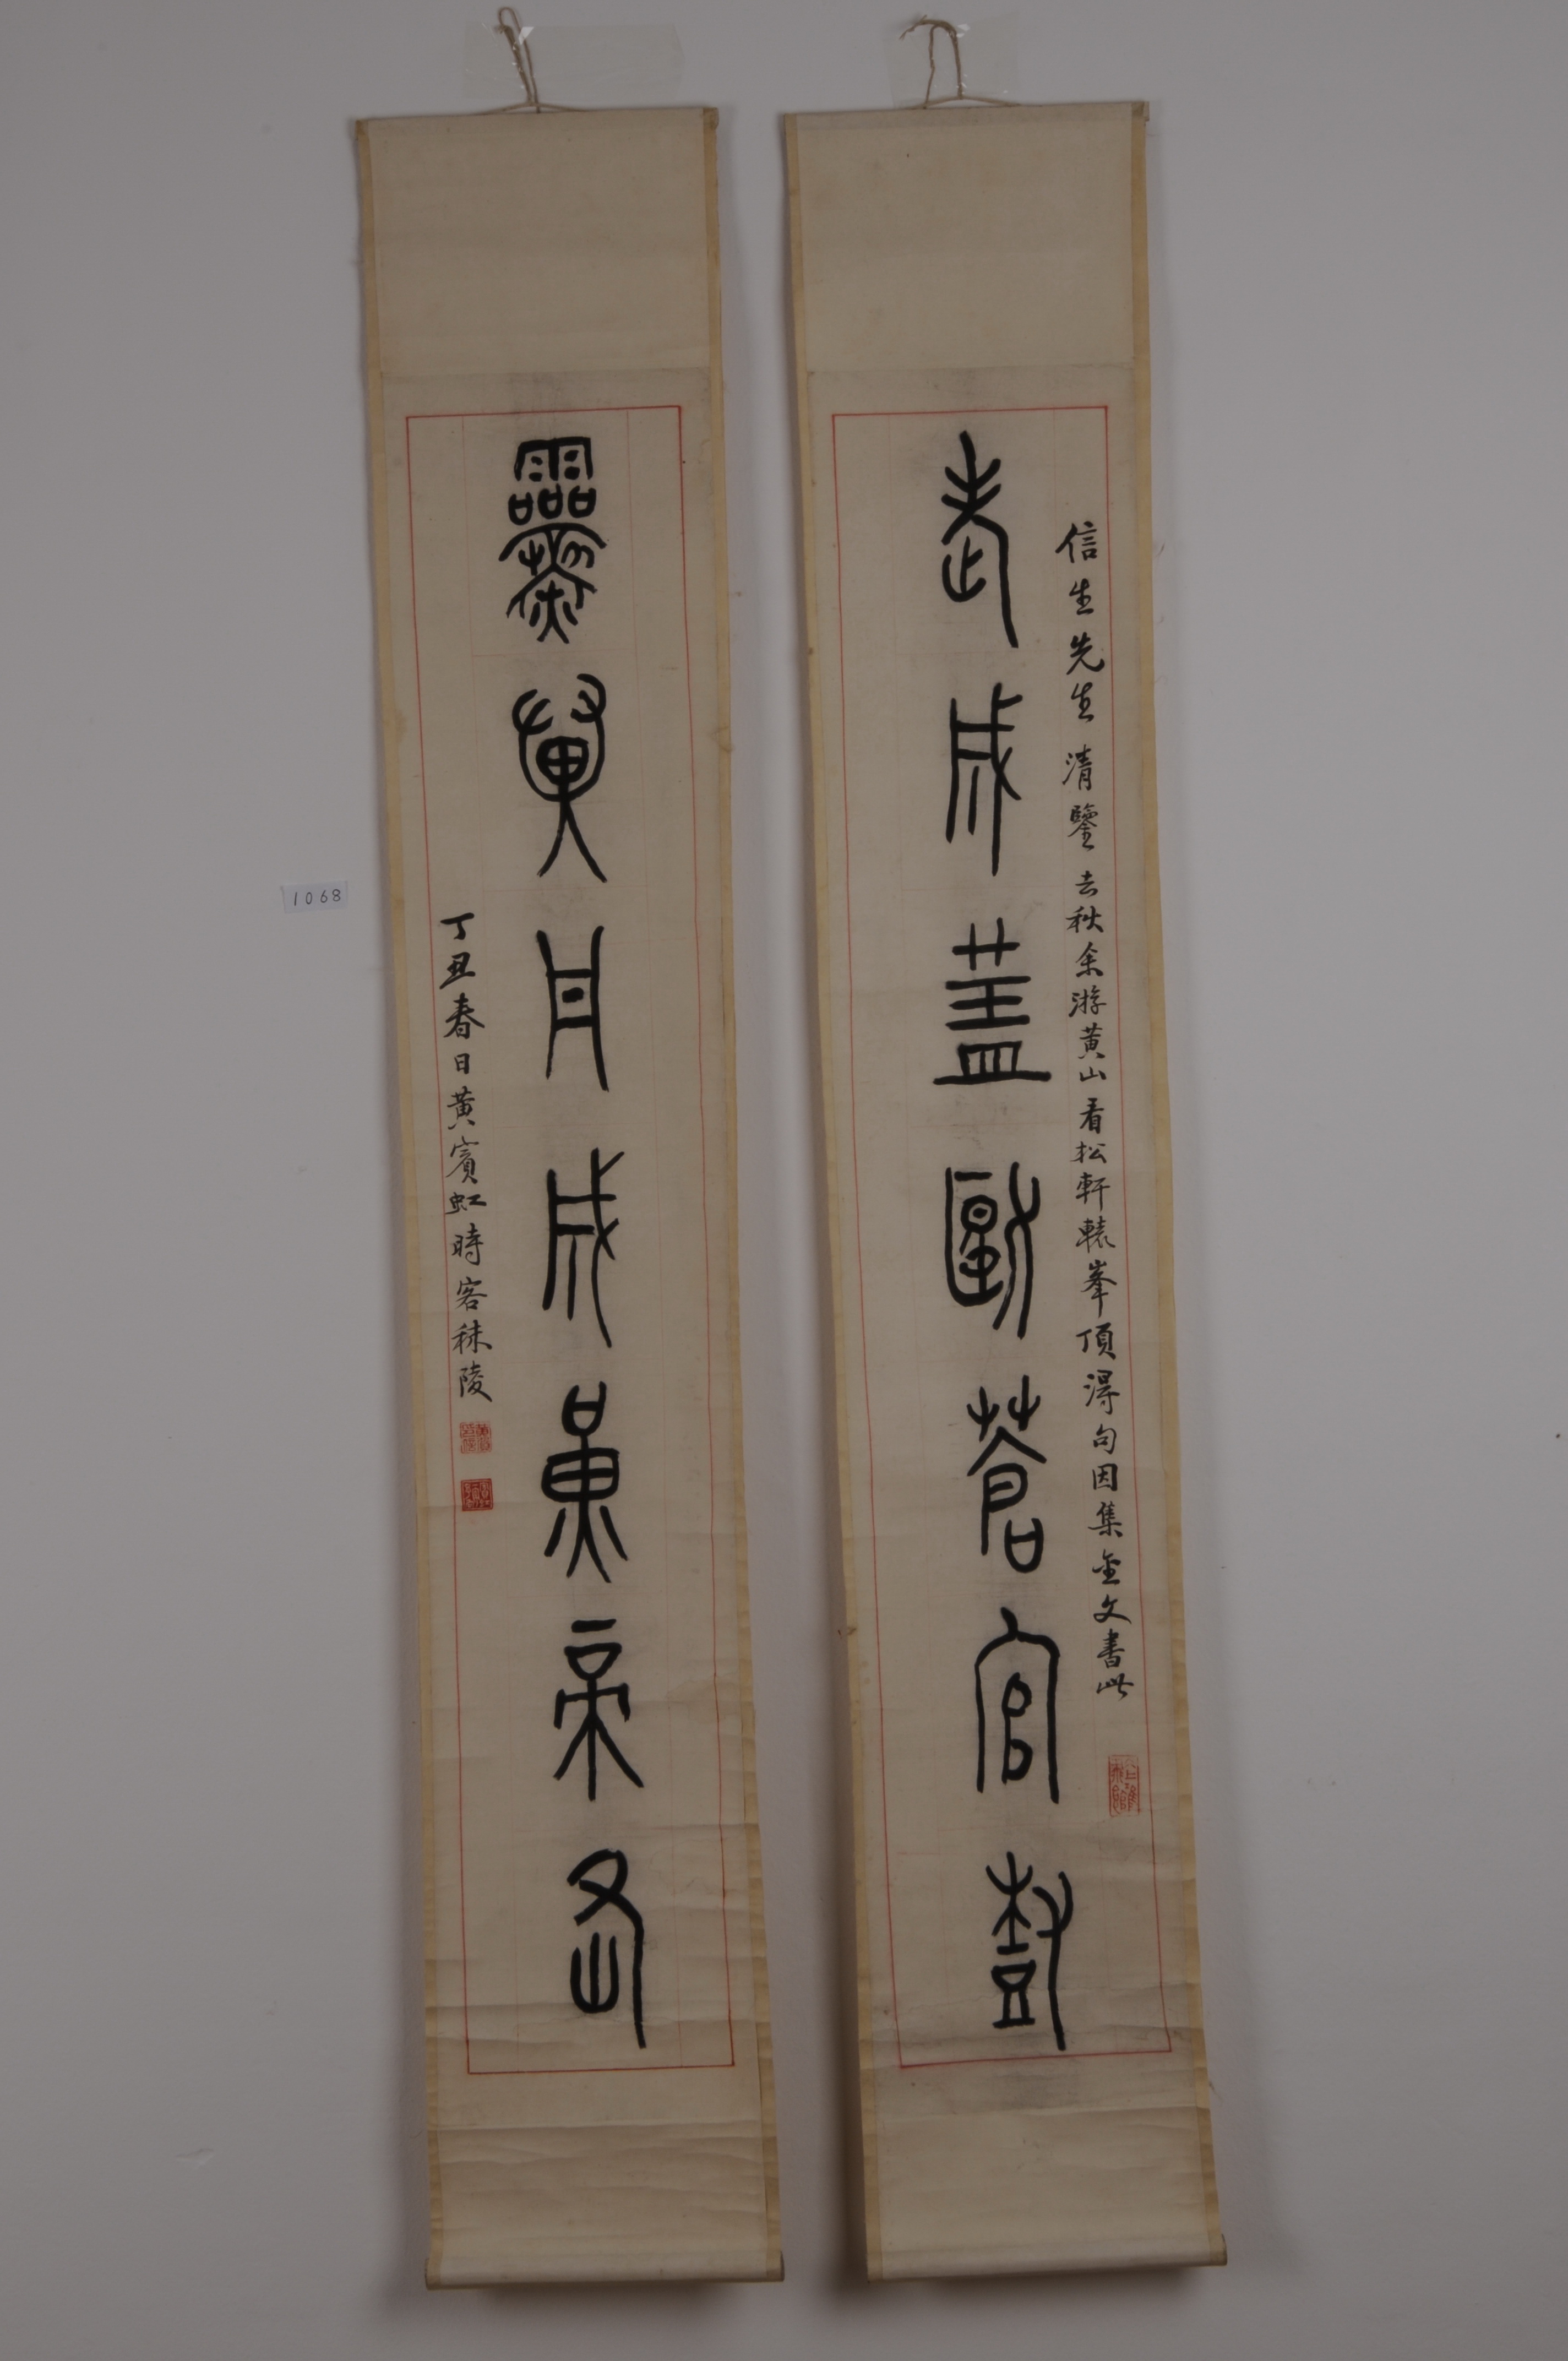 成蓋蒼官
信生先生清鑒去秋余游黃山看松軒轅峯頂得句因集金文書此
丹成黃帝
丁丑春日黃賓虹時客秣陵
1068